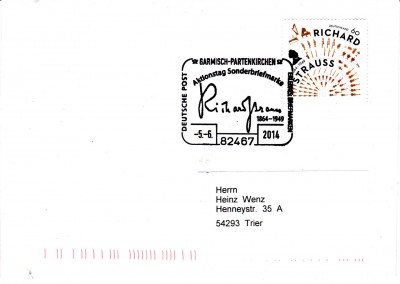 DEUTSCHLAND 60
RICHARD
STRAUSS
GARMISCH-PARTENKIRCHEN
Aktionstag Sonderbriefmarke
DEUTSCHE POST
ERLEBNIS: BRIEFMARKEN
Richard Strauss
1864-1949
-5.-6. 2014
82467
Herrn
Heinz Wenz
Henneystr. 35 A
54293 Trier